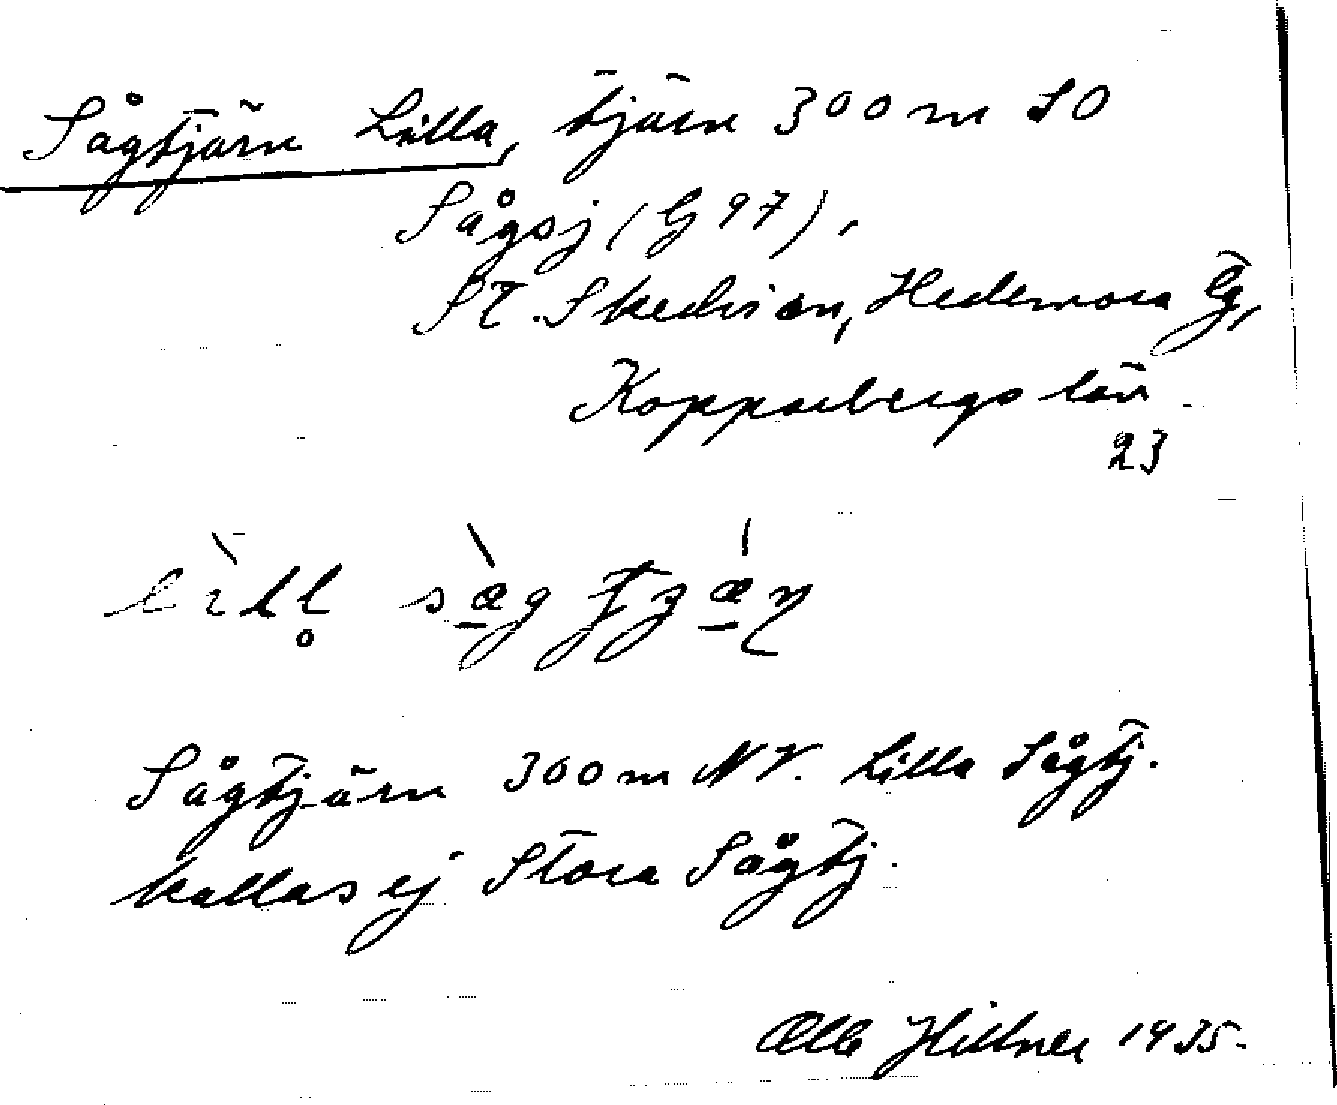 Sågtjärn Lilla, tjärn 300 m SO
Sågsj (G 97),
St. Skedvi sn, Hedemora tg,
Kopparbergs län
23
lìll̥ sæ̀g tjǽṇ
Sågtjärn 300 m NV. Lilla Sågtj.
kallas ej Stora Sågtj.
Hillner 1935.